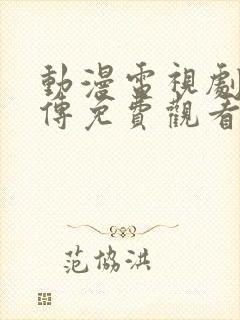 動漫電視劇
傳免費觀看
范協洪